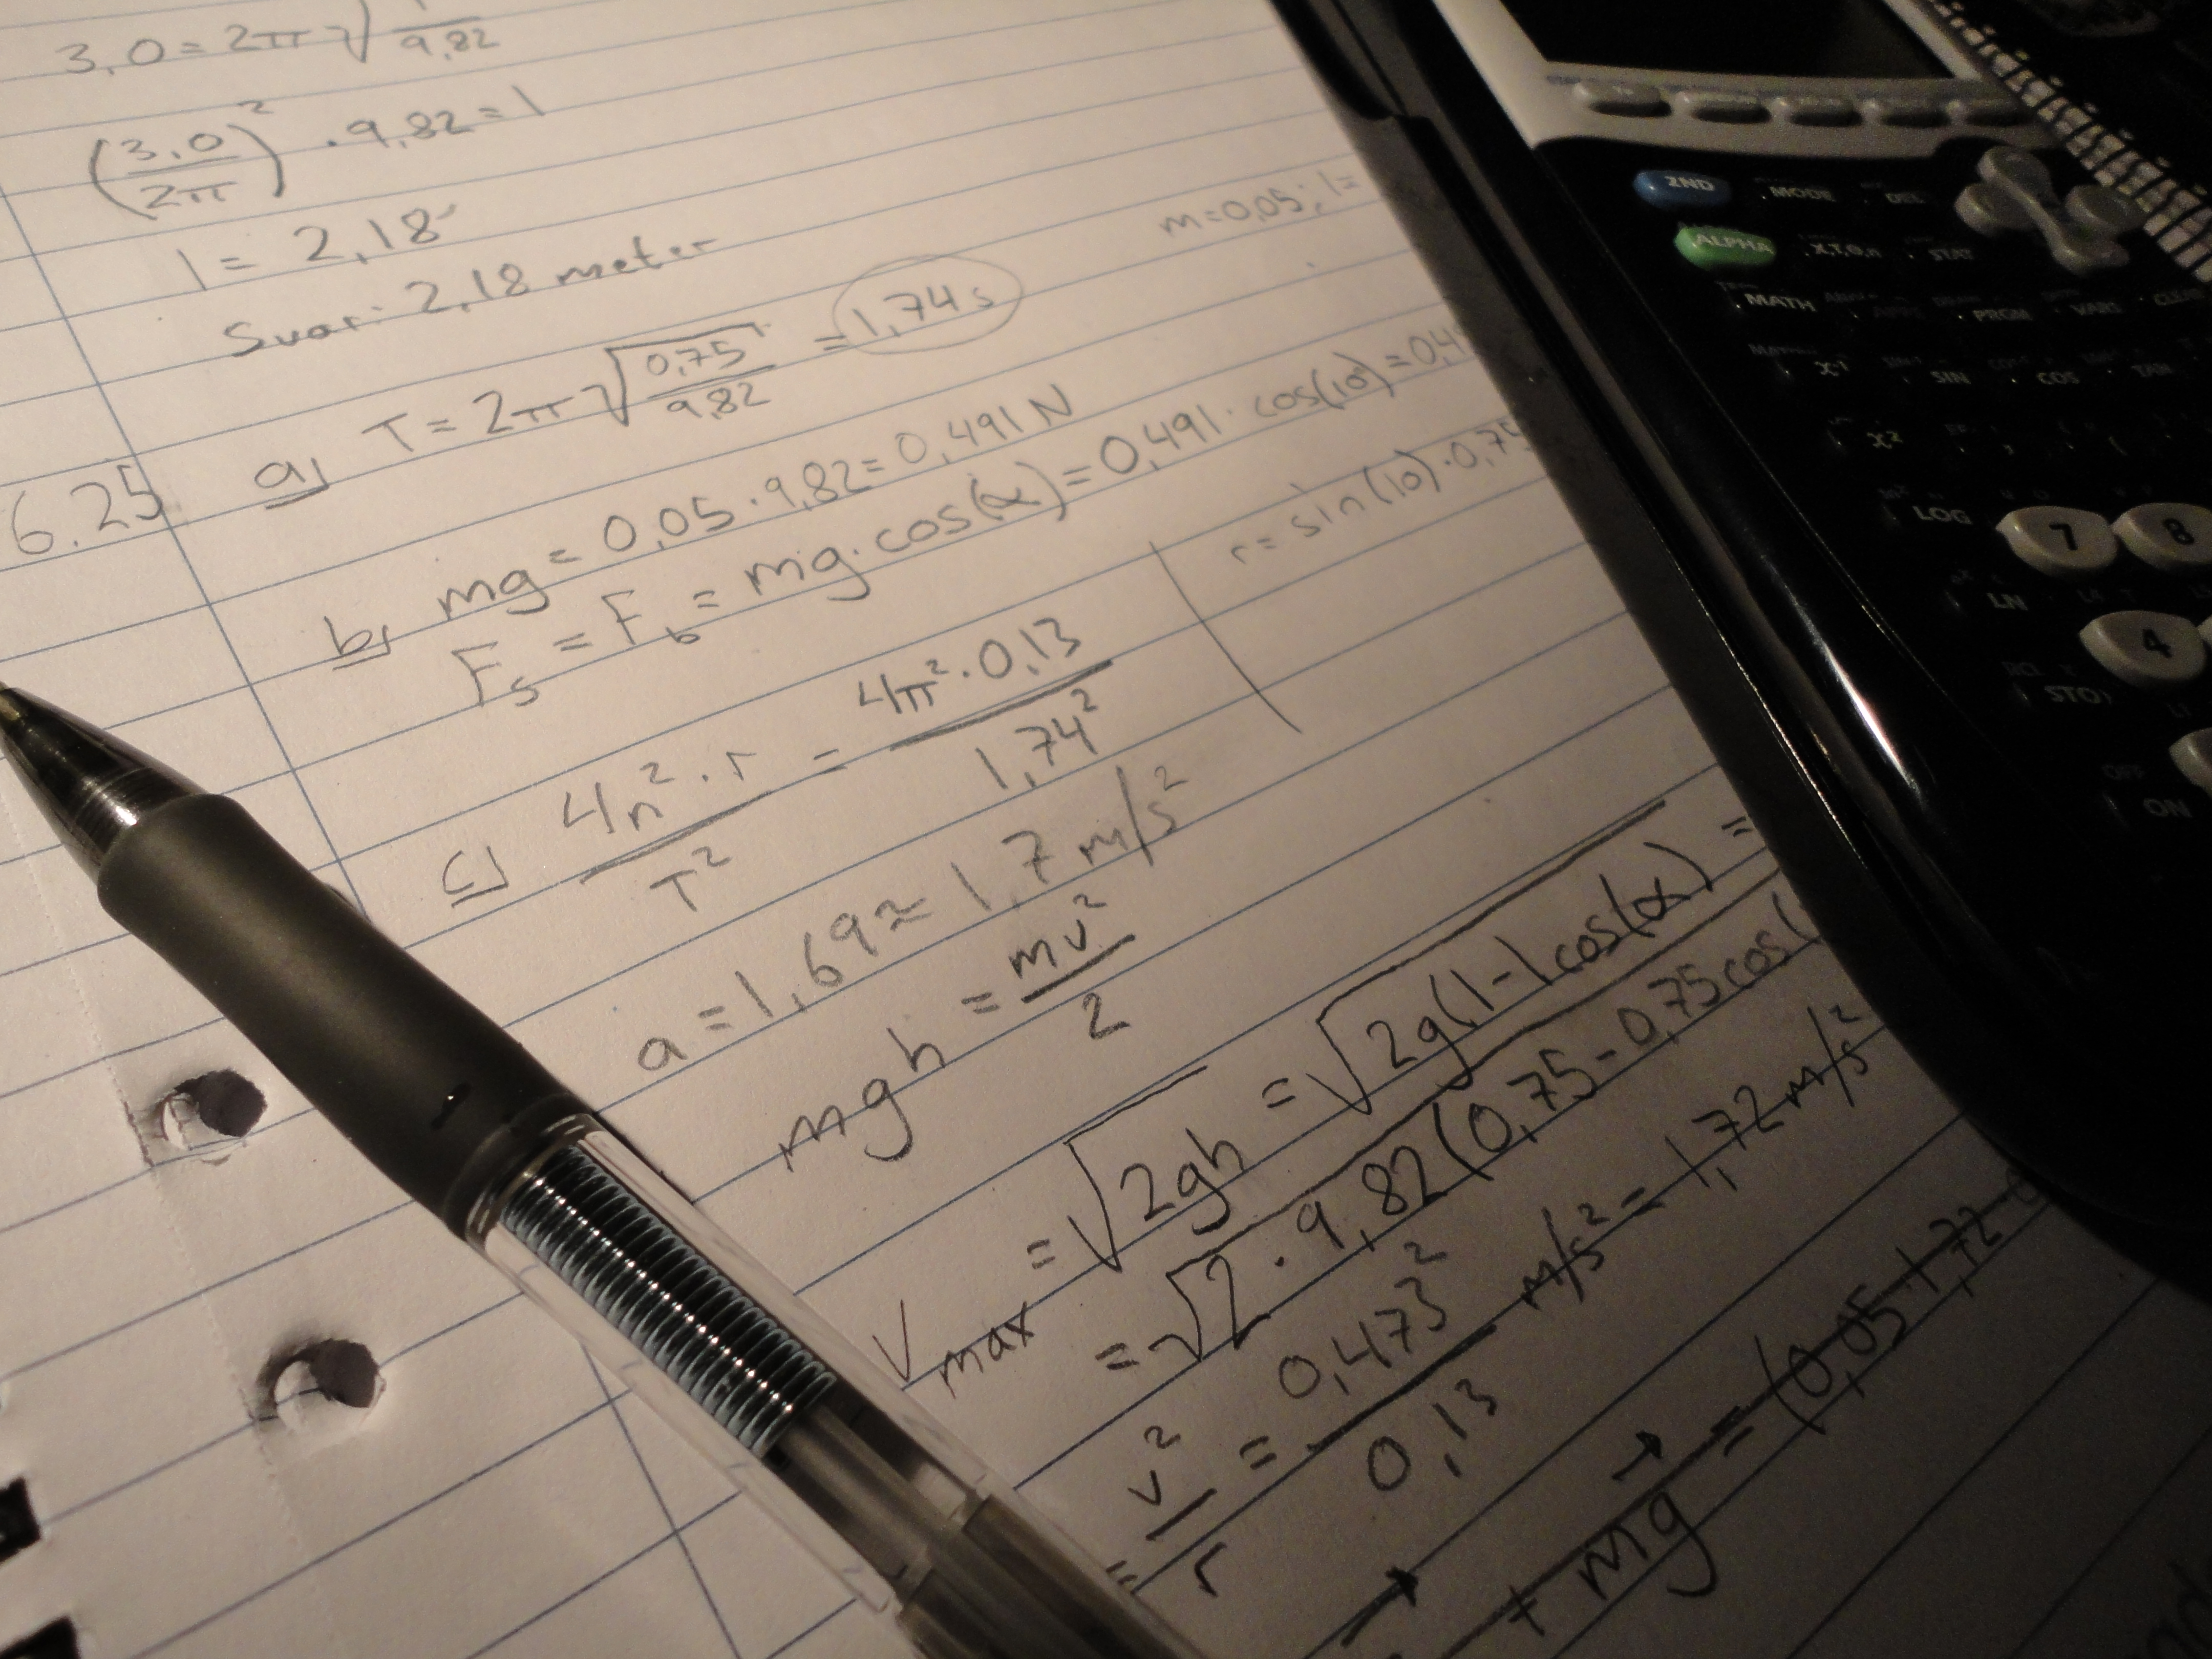 3,0 = 2π√ 9,82
(3,0/2π)² · 9,82 = l
l = 2,18
Svar: 2,18 meter
m = 0,05 ; l =
6.25 a) T = 2π√(0,75/9,82) = 1,74 s
b) mg = 0,05 · 9,82 = 0,491 N
Fs = Fb = mg · cos(α) = 0,491 · cos(10) = 0,4
r = sin(10) · 0,75
c) 4π² · r / T² = 4π² · 0,13 / 1,74²
a = 1,69 ≈ 1,7 m/s²
mgh = mv²/2
Vmax = √2gh = √2g(l - l cos(α) =
= √2 · 9,82(0,75 - 0,75 cos(
= v²/r = 0,473²/0,13 m/s² = 1,72 m/s²
+ mg = (0,05 · 1,72
2ND
MODE
DEL
ALPHA
X,T,θ,n
STAT
MATH
APPS
PRGM
VARS
CLEAR
x⁻¹
SIN
COS
TAN
x²
,
(
LOG
7
8
LN
4
STO
OFF
ON